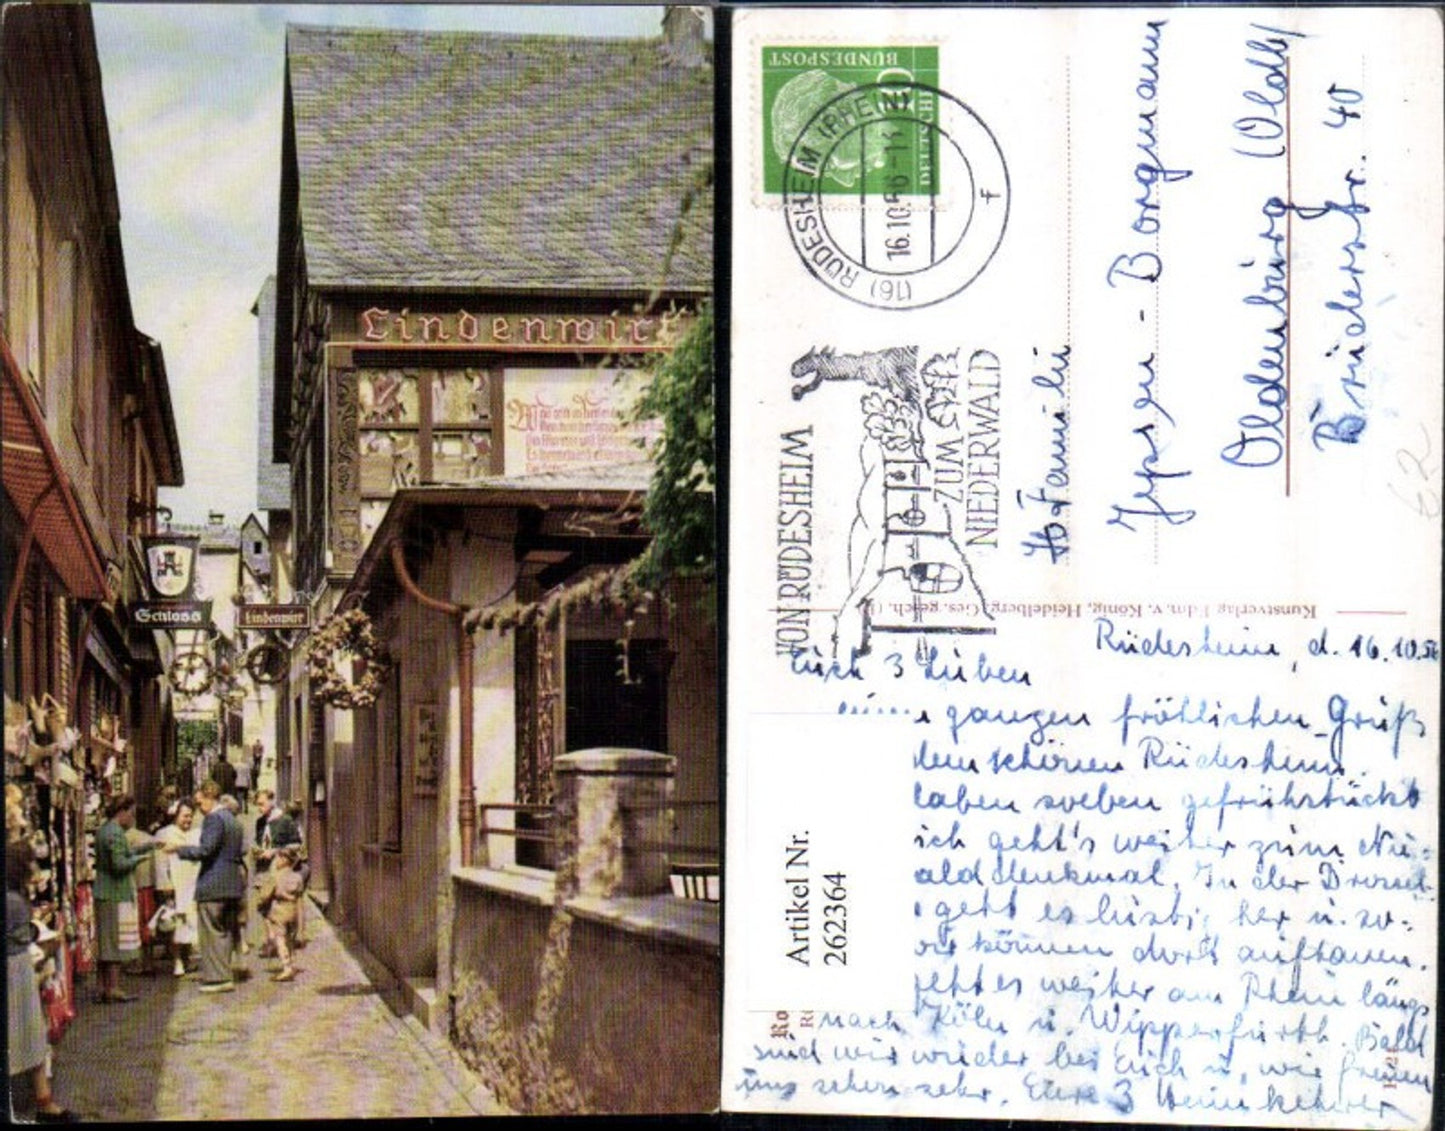 Lindenwirt
Schloss
Lindenwirt
BUNDESPOST
DEUTSCHE
(16) RÜDESHEIM (RHEIN)
16.10.56-14
f
VON RÜDESHEIM
ZUM
NIEDERWALD
Familie
Jepsen - Borgmann
Oldenburg (Oldb)
Brüderstr. 40
62
Kunstverlag Edm. v. König, Heidelberg, Ges. gesch.
Rüdesheim, d. 16.10.56
Euch 3 Lieben
ganzen fröhlichen Gruß
dem schönen Rüdesheim.
haben soeben gefrühstückt
ich geht's weiter zum Nie-
ald denkmal. In der Drossel-
geht es lustig her u. so-
können dort auftauen.
geht es weiter am Rhein längs
nach Köln u. Wipperfürth. Bald
sind wir wieder bei Euch u. wir freuen
uns sehen sehr. Eure 3 Heimkehrer
Artikel Nr.
262364
Ro